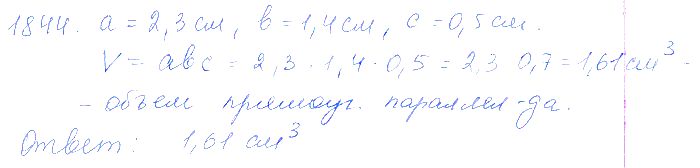 1844. a = 2,3 см, b = 1,4 см, c = 0,5 см.
V = abc = 2,3 · 1,4 · 0,5 = 2,3 0,7 = 1,61 см³ -
- объем прямоуг. параллел-да.
Ответ: 1,61 см³